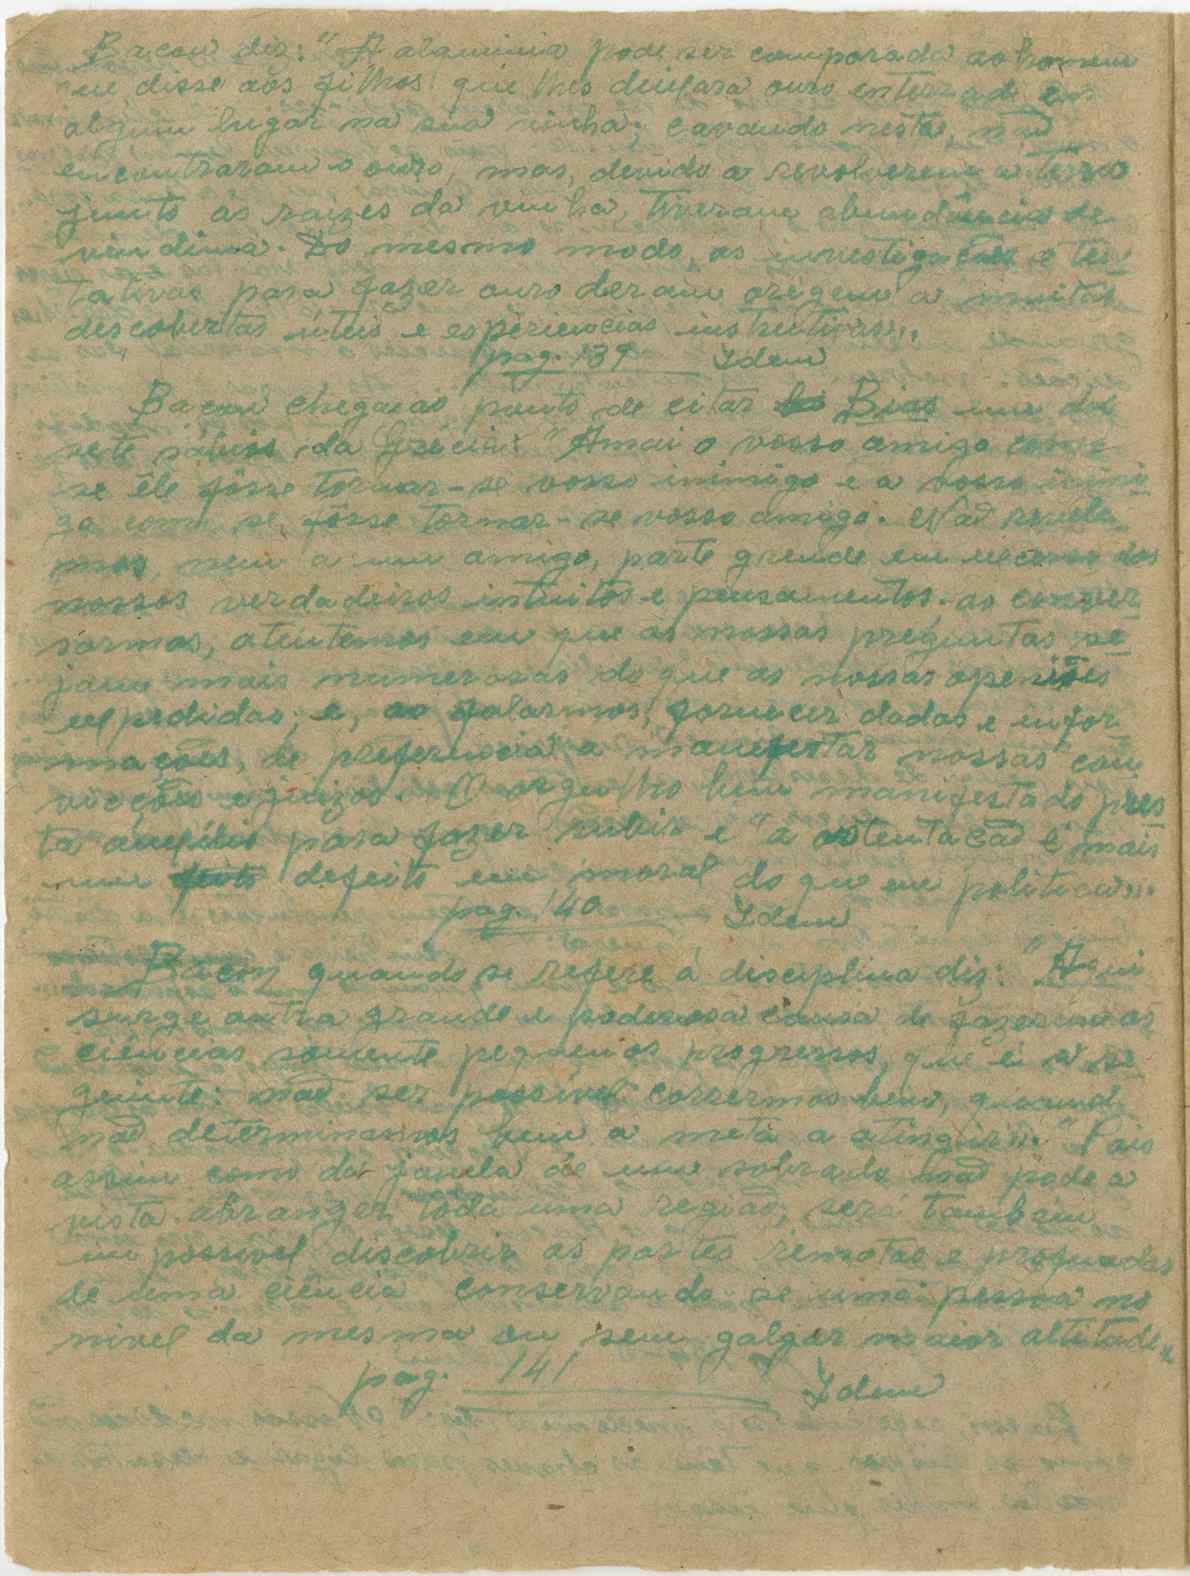 Bacon diz: "A alquimia pode ser comparada ao homem
que disse aos filhos que lhes deixara ouro enterrado em
algum lugar na sua vinha; cavando nesta, não
encontraram o ouro, mas, devido a revolverem a terra
junto às raízes da vinha, tiveram abundância de
vindima. Do mesmo modo, as investigações e ten-
tativas para fazer ouro deram origem a muitas
descobertas úteis e experiencias instrutivas".
pag. 139 Idem
Bacon chega ao ponto de citar Bias um dos
sete sábios da Grécia: "Amai o vosso amigo como
se êle fôsse tornar-se vosso inimigo e a vosso inimi-
go como se fôsse tornar-se vosso amigo. Não revele
mos, nem a um amigo, parte grande em excesso dos
nossos verdadeiros intuitos e pensamentos. ao conver
sarmos, atentemos em que as nossas preguntas se
jam mais numerosas do que as nossas openiões
expedidas; e, ao falarmos, fornecer dados e infor
mações, de preferencia a manefestar nossas con
vicções e juizos. O orgulho bem manifestado pres
ta auxílio para fazer subir e "a ostentação é mais
um defeito em moral do que em politica".
pag. 140 Idem
Bacon quando se refere á disciplina diz: "Aqui
surge outra grande e poderosa causa de fazerem as
ciências somente pequenos progressos, que é a se
guinte: não ser possível corrermos bem, quando
não determinamos bem a meta a atingir". "Pois
assim como da janela de um sobrado não pode a
vista abranger toda uma região, será tambem
impossivel discobrir as partes remotas e profundas
de uma ciência conservando-se uma pessoa no
nivel da mesma ou sem galgar maior altitude"
pag. 141 Idem